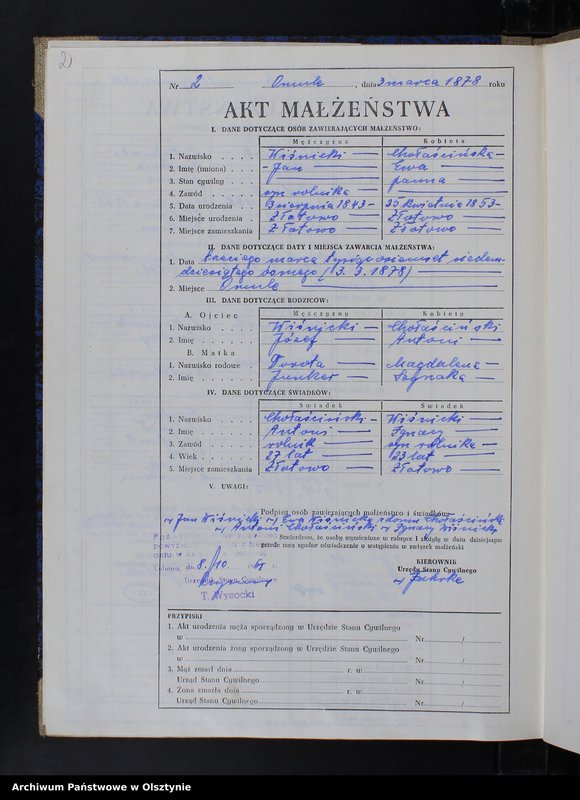 2
Nr 2 Omule, dnia 3 marca 1878 roku
AKT MAŁŻEŃSTWA
I. DANE DOTYCZĄCE OSÓB ZAWIERAJĄCYCH MAŁŻEŃSTWO:
Mężczyzna Kobieta
1. Nazwisko Wiśnicki Chołaścińska
2. Imię (imiona) Jan Ewa
3. Stan cywilny panna
4. Zawód syn rolnika
5. Data urodzenia 3 sierpnia 1843 25 kwietnia 1853
6. Miejsce urodzenia Złotowo Złotowo
7. Miejsce zamieszkania Złotowo Złotowo
II. DANE DOTYCZĄCE DATY I MIEJSCA ZAWARCIA MAŁŻEŃSTWA:
1. Data trzeciego marca tysiąc osiemset siedem-
dziesiątego ósmego (3. 3. 1878)
2. Miejsce Omule
III. DANE DOTYCZĄCE RODZICÓW:
A. Ojciec Mężczyzny Kobiety
1. Nazwisko Wiśnicki Chołaściński
2. Imię Józef Antoni
B. Matka
1. Nazwisko rodowe Dorota Magdalena
2. Imię Junker
IV. DANE DOTYCZĄCE ŚWIADKÓW:
Świadek Świadek
1. Nazwisko Chołaściński Wiśnicki
2. Imię Antoni Ignacy
3. Zawód rolnik syn rolnika
4. Wiek 27 lat 23 lat
5. Miejsce zamieszkania Złotowo Złotowo
V. UWAGI:
Podpisy osób zawierających małżeństwo i świadków
Jan Wiśnicki Ewa Wiśnicka z domu Chołaścińska
Antoni Chołaściński Ignacy Wiśnicki
Stwierdzam, że osoby wymienione w rubryce I złożyły w dniu dzisiejszym
przede mną zgodne oświadczenie o wstąpieniu w związek małżeński
Lubawa, dn. 8/10
KIEROWNIK
Urzędu Stanu Cywilnego
T. Wysocki
PRZYPISKI
1. Akt urodzenia męża sporządzony w Urzędzie Stanu Cywilnego
w Nr /
2. Akt urodzenia żony sporządzony w Urzędzie Stanu Cywilnego
w Nr /
3. Mąż zmarł dnia r. w
Urząd Stanu Cywilnego Nr /
4. Żona zmarła dnia r. w
Urząd Stanu Cywilnego Nr /
Archiwum Państwowe w Olsztynie